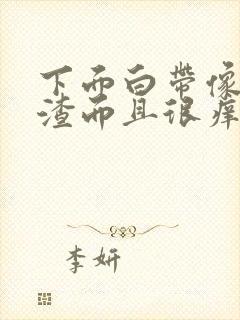 下而白带像
渣而且很痒
李妍